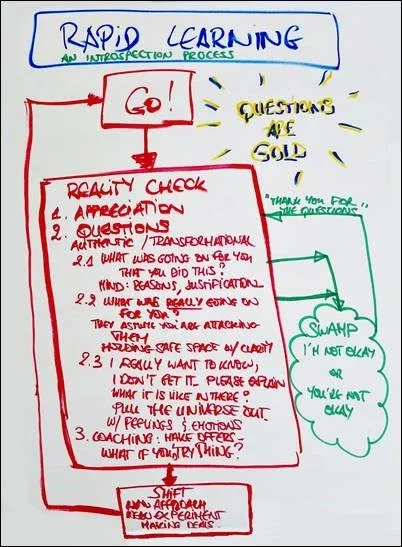 RAPID LEARNING
AN INTROSPECTION PROCESS
GO!
QUESTIONS
ARE
GOLD
REALITY CHECK
1. APPRECIATION
2. QUESTIONS
AUTHENTIC / TRANSFORMATIONAL
2.1 WHAT WAS GOING ON FOR YOU
THAT YOU DID THIS?
MIND: REASONS, JUSTIFICATION
2.2 WHAT WAS REALLY GOING ON
FOR YOU?
THEY ASSUME YOU ARE ATTACKING
THEM
HOLDING SAFE SPACE W/ CLARITY
2.3 I REALLY WANT TO KNOW,
I DON'T GET IT. PLEASE EXPLAIN
WHAT IT IS LIKE IN THERE?
PULL THE UNIVERSE OUT
W/ FEELINGS & EMOTIONS
3. COACHING: MAKE OFFERS
WHAT IF YOU TRY THING?
"THANK YOU FOR
THE QUESTIONS
SWAMP
I'M NOT OKAY
OR
YOU'RE NOT
OKAY
SHIFT
NEW APPROACH
NEW EXPERIMENT
MAKING DEALS